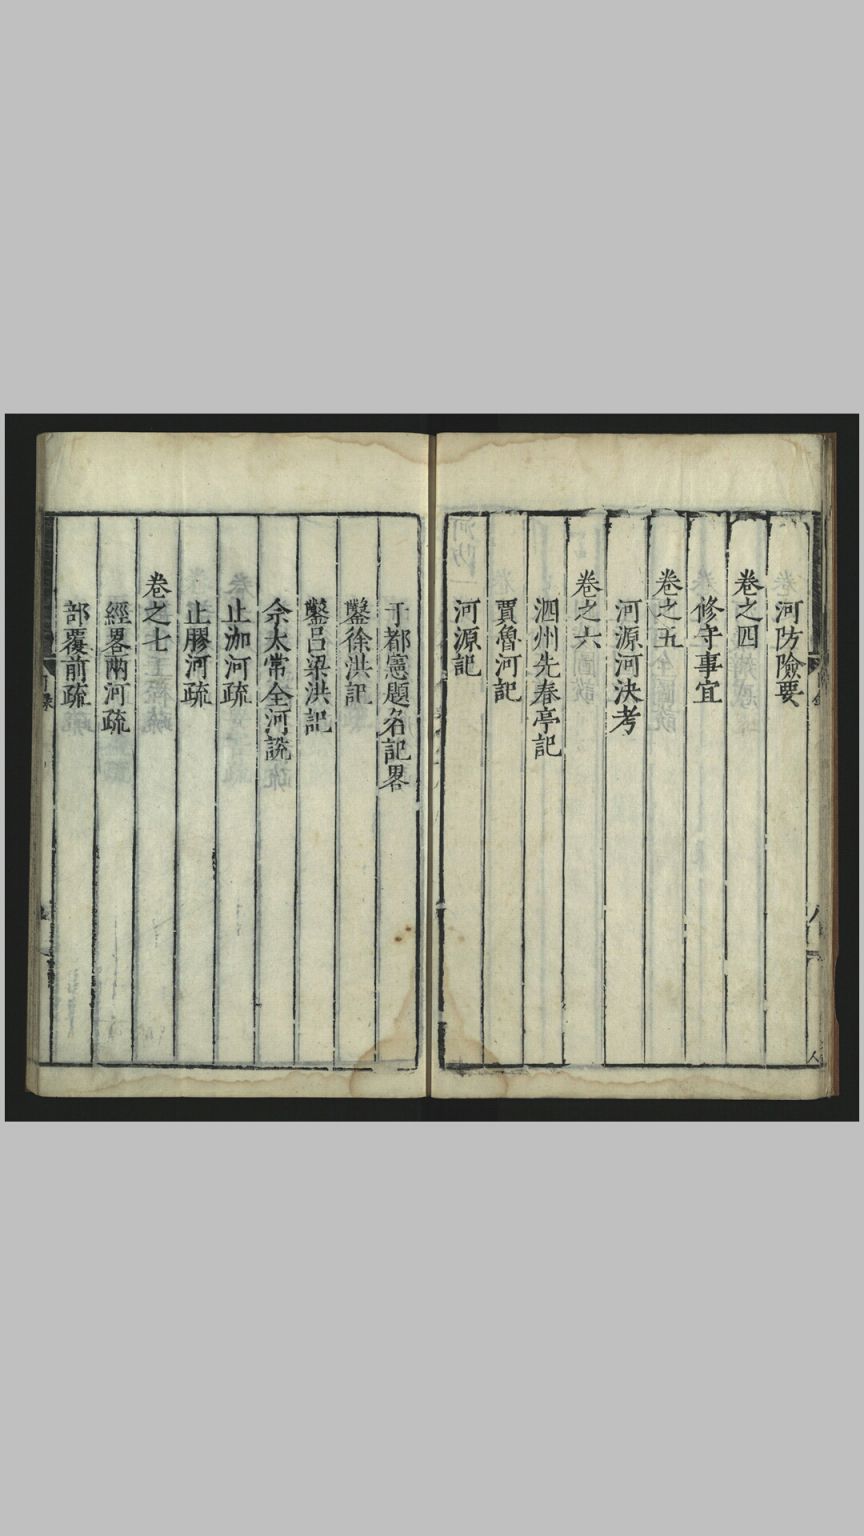 河防險要
卷之四
修守事宜
卷之五
河源河決考
卷之六
泗州先春亭記
賈魯河記
河源記
于都憲題名記畧
鑿徐洪記
鑿呂梁洪記
佘太常全河說
止泇河疏
止膠河疏
卷之七
經畧兩河疏
部覆前疏